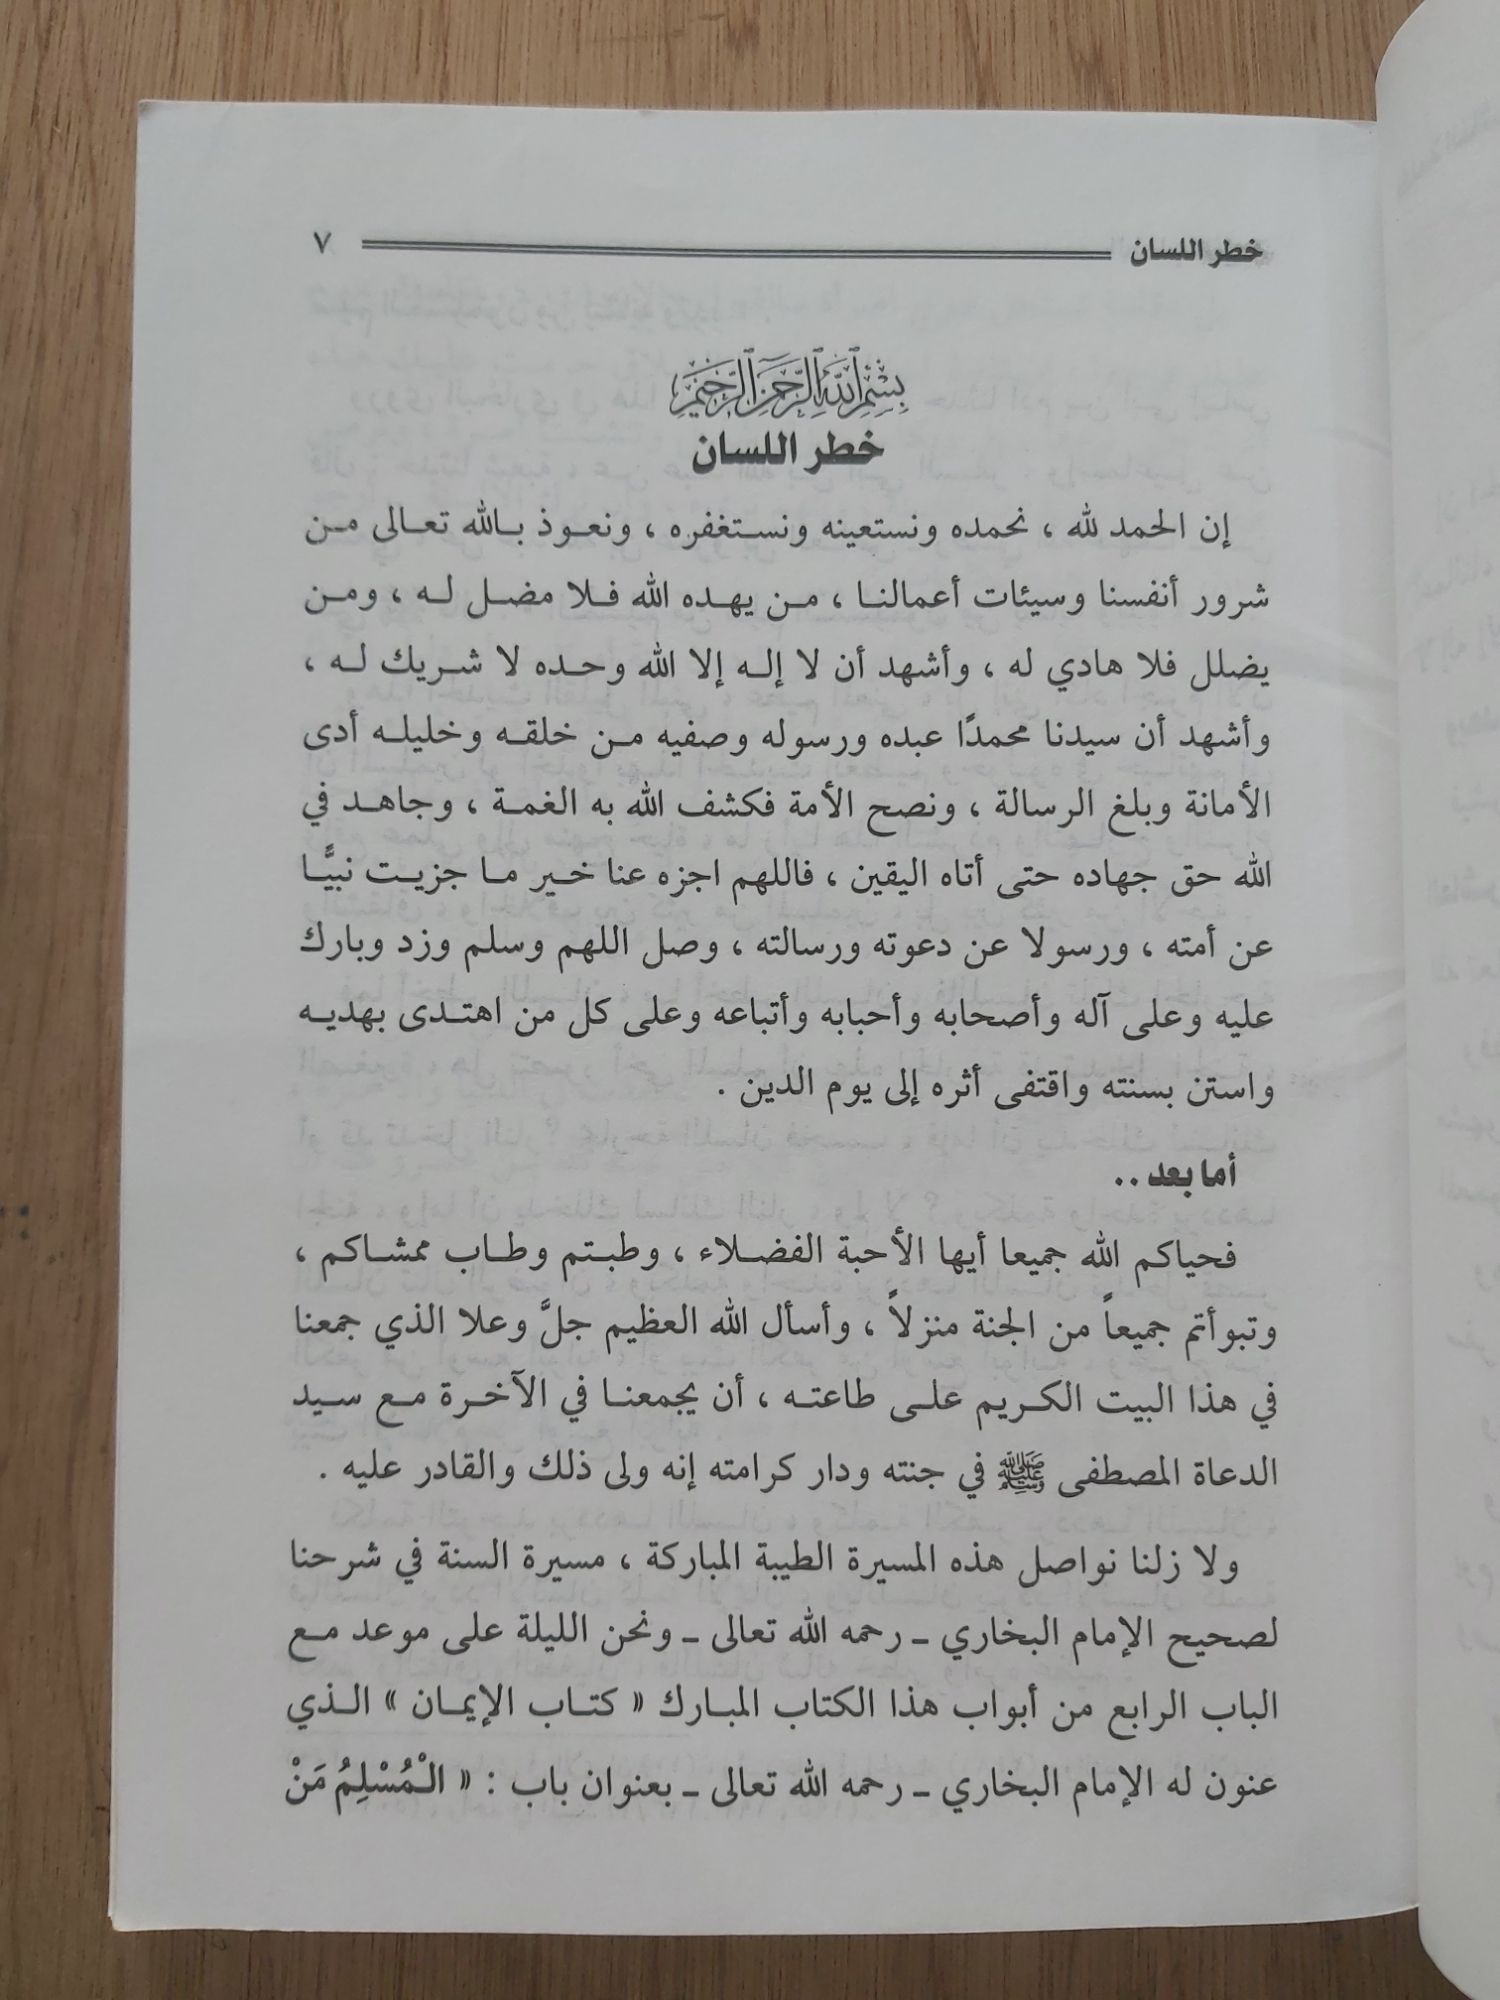 خطر اللسان ٧
بِسْمِ اللَّهِ الرَّحْمَنِ الرَّحِيمِ
خطر اللسان
إن الحمد لله ، نحمده ونستعينه ونستغفره ، ونعوذ بالله تعالى من
شرور أنفسنا وسيئات أعمالنا ، من يهده الله فلا مضل له ، ومن
يضلل فلا هادي له ، وأشهد أن لا إله إلا الله وحده لا شريك له ،
وأشهد أن سيدنا محمدًا عبده ورسوله وصفيه من خلقه وخليله أدى
الأمانة وبلغ الرسالة ، ونصح الأمة فكشف الله به الغمة ، وجاهد في
الله حق جهاده حتى أتاه اليقين ، فاللهم اجزه عنا خير ما جزيت نبيًّا
عن أمته ، ورسولا عن دعوته ورسالته ، وصل اللهم وسلم وزد وبارك
عليه وعلى آله وأصحابه وأحبابه وأتباعه وعلى كل من اهتدى بهديه
واستن بسنته واقتفى أثره إلى يوم الدين .
أما بعد ..
فحياكم الله جميعا أيها الأحبة الفضلاء ، وطبتم وطاب ممشاكم ،
وتبوأتم جميعاً من الجنة منزلاً ، وأسأل الله العظيم جلَّ وعلا الذي جمعنا
في هذا البيت الكريم على طاعته ، أن يجمعنا في الآخرة مع سيد
الدعاة المصطفى ﷺ في جنته ودار كرامته إنه ولى ذلك والقادر عليه .
ولا زلنا نواصل هذه المسيرة الطيبة المباركة ، مسيرة السنة في شرحنا
لصحيح الإمام البخاري ـ رحمه الله تعالى ـ ونحن الليلة على موعد مع
الباب الرابع من أبواب هذا الكتاب المبارك « كتاب الإيمان » الذي
عنون له الإمام البخاري ـ رحمه الله تعالى ـ بعنوان باب : « الْمُسْلِمُ مَنْ